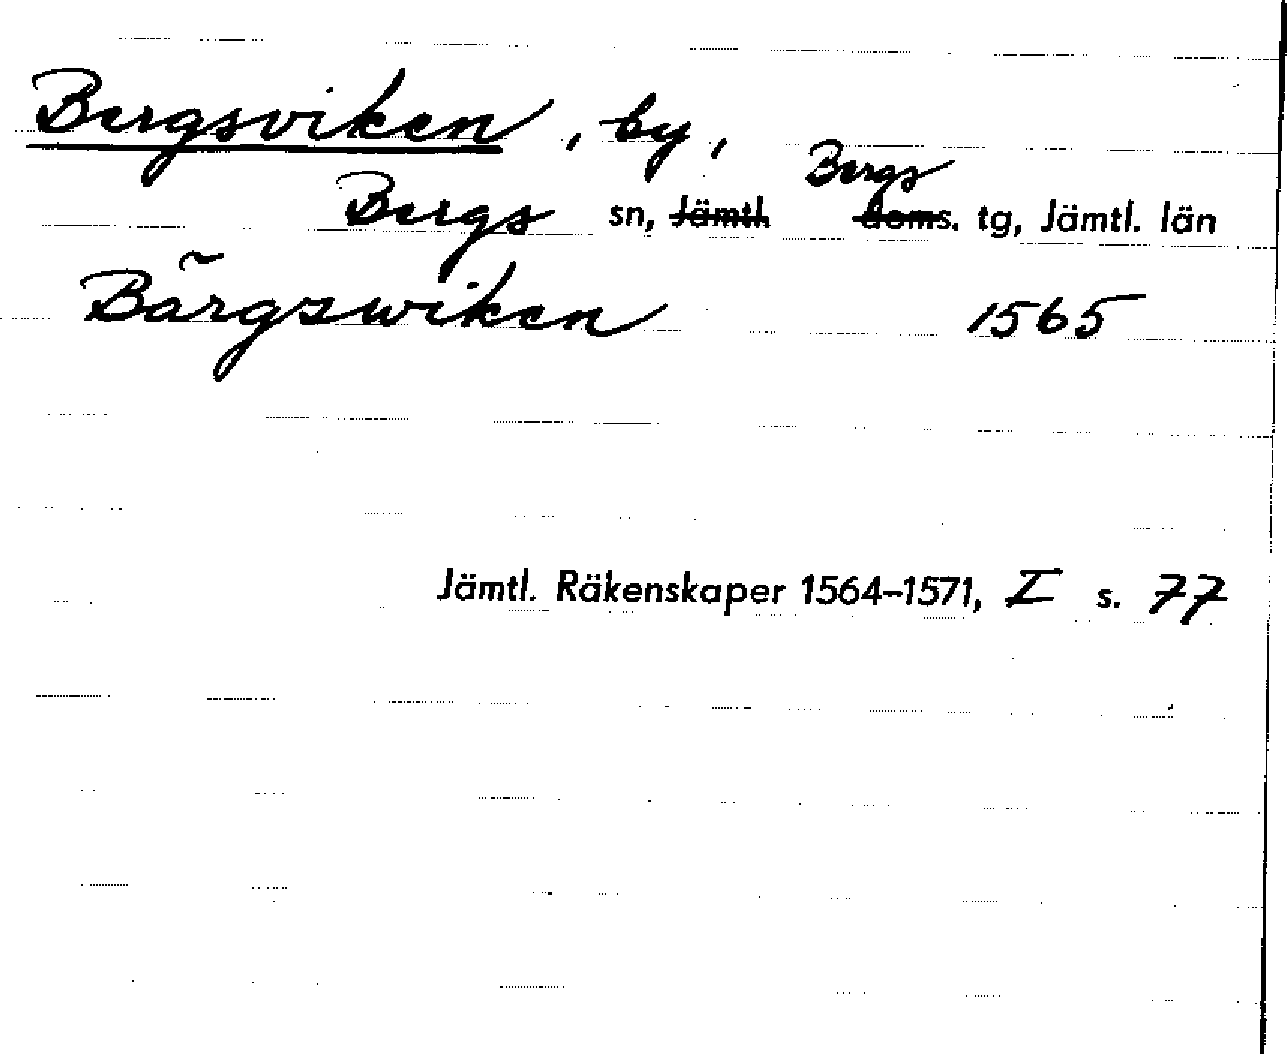 Bergsviken, by,
Bergs sn, Jämtl. Bergs doms. tg, Jämtl. län
Bãrgswiken 1565
Jämtl. Räkenskaper 1564–1571, I s. 77